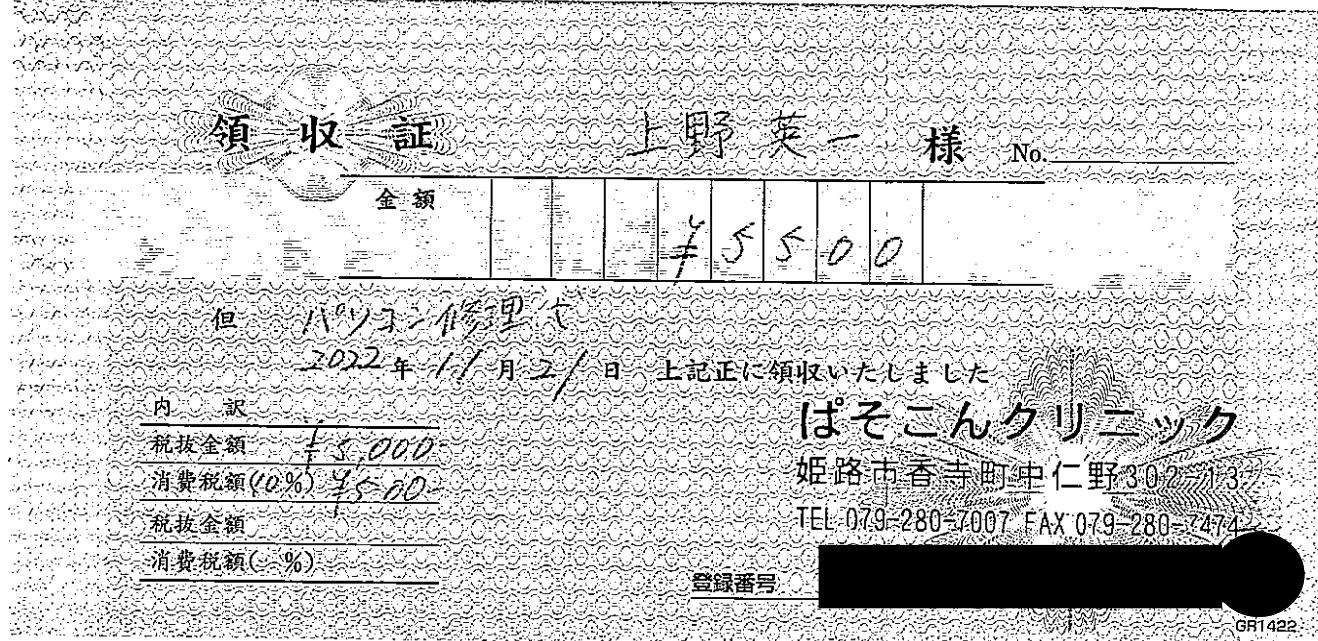 領収証 上野英一 様 No.
金額 ¥5500
但 パソコン修理代
2022年11月21日 上記正に領収いたしました
内訳
税抜金額 ¥5,000-
消費税額(10%) ¥500-
税抜金額
消費税額( %)
ぱそこんクリニック
姫路市香寺町中仁野302-13
TEL 079-280-7007 FAX 079-280-7474
登録番号
GR1422